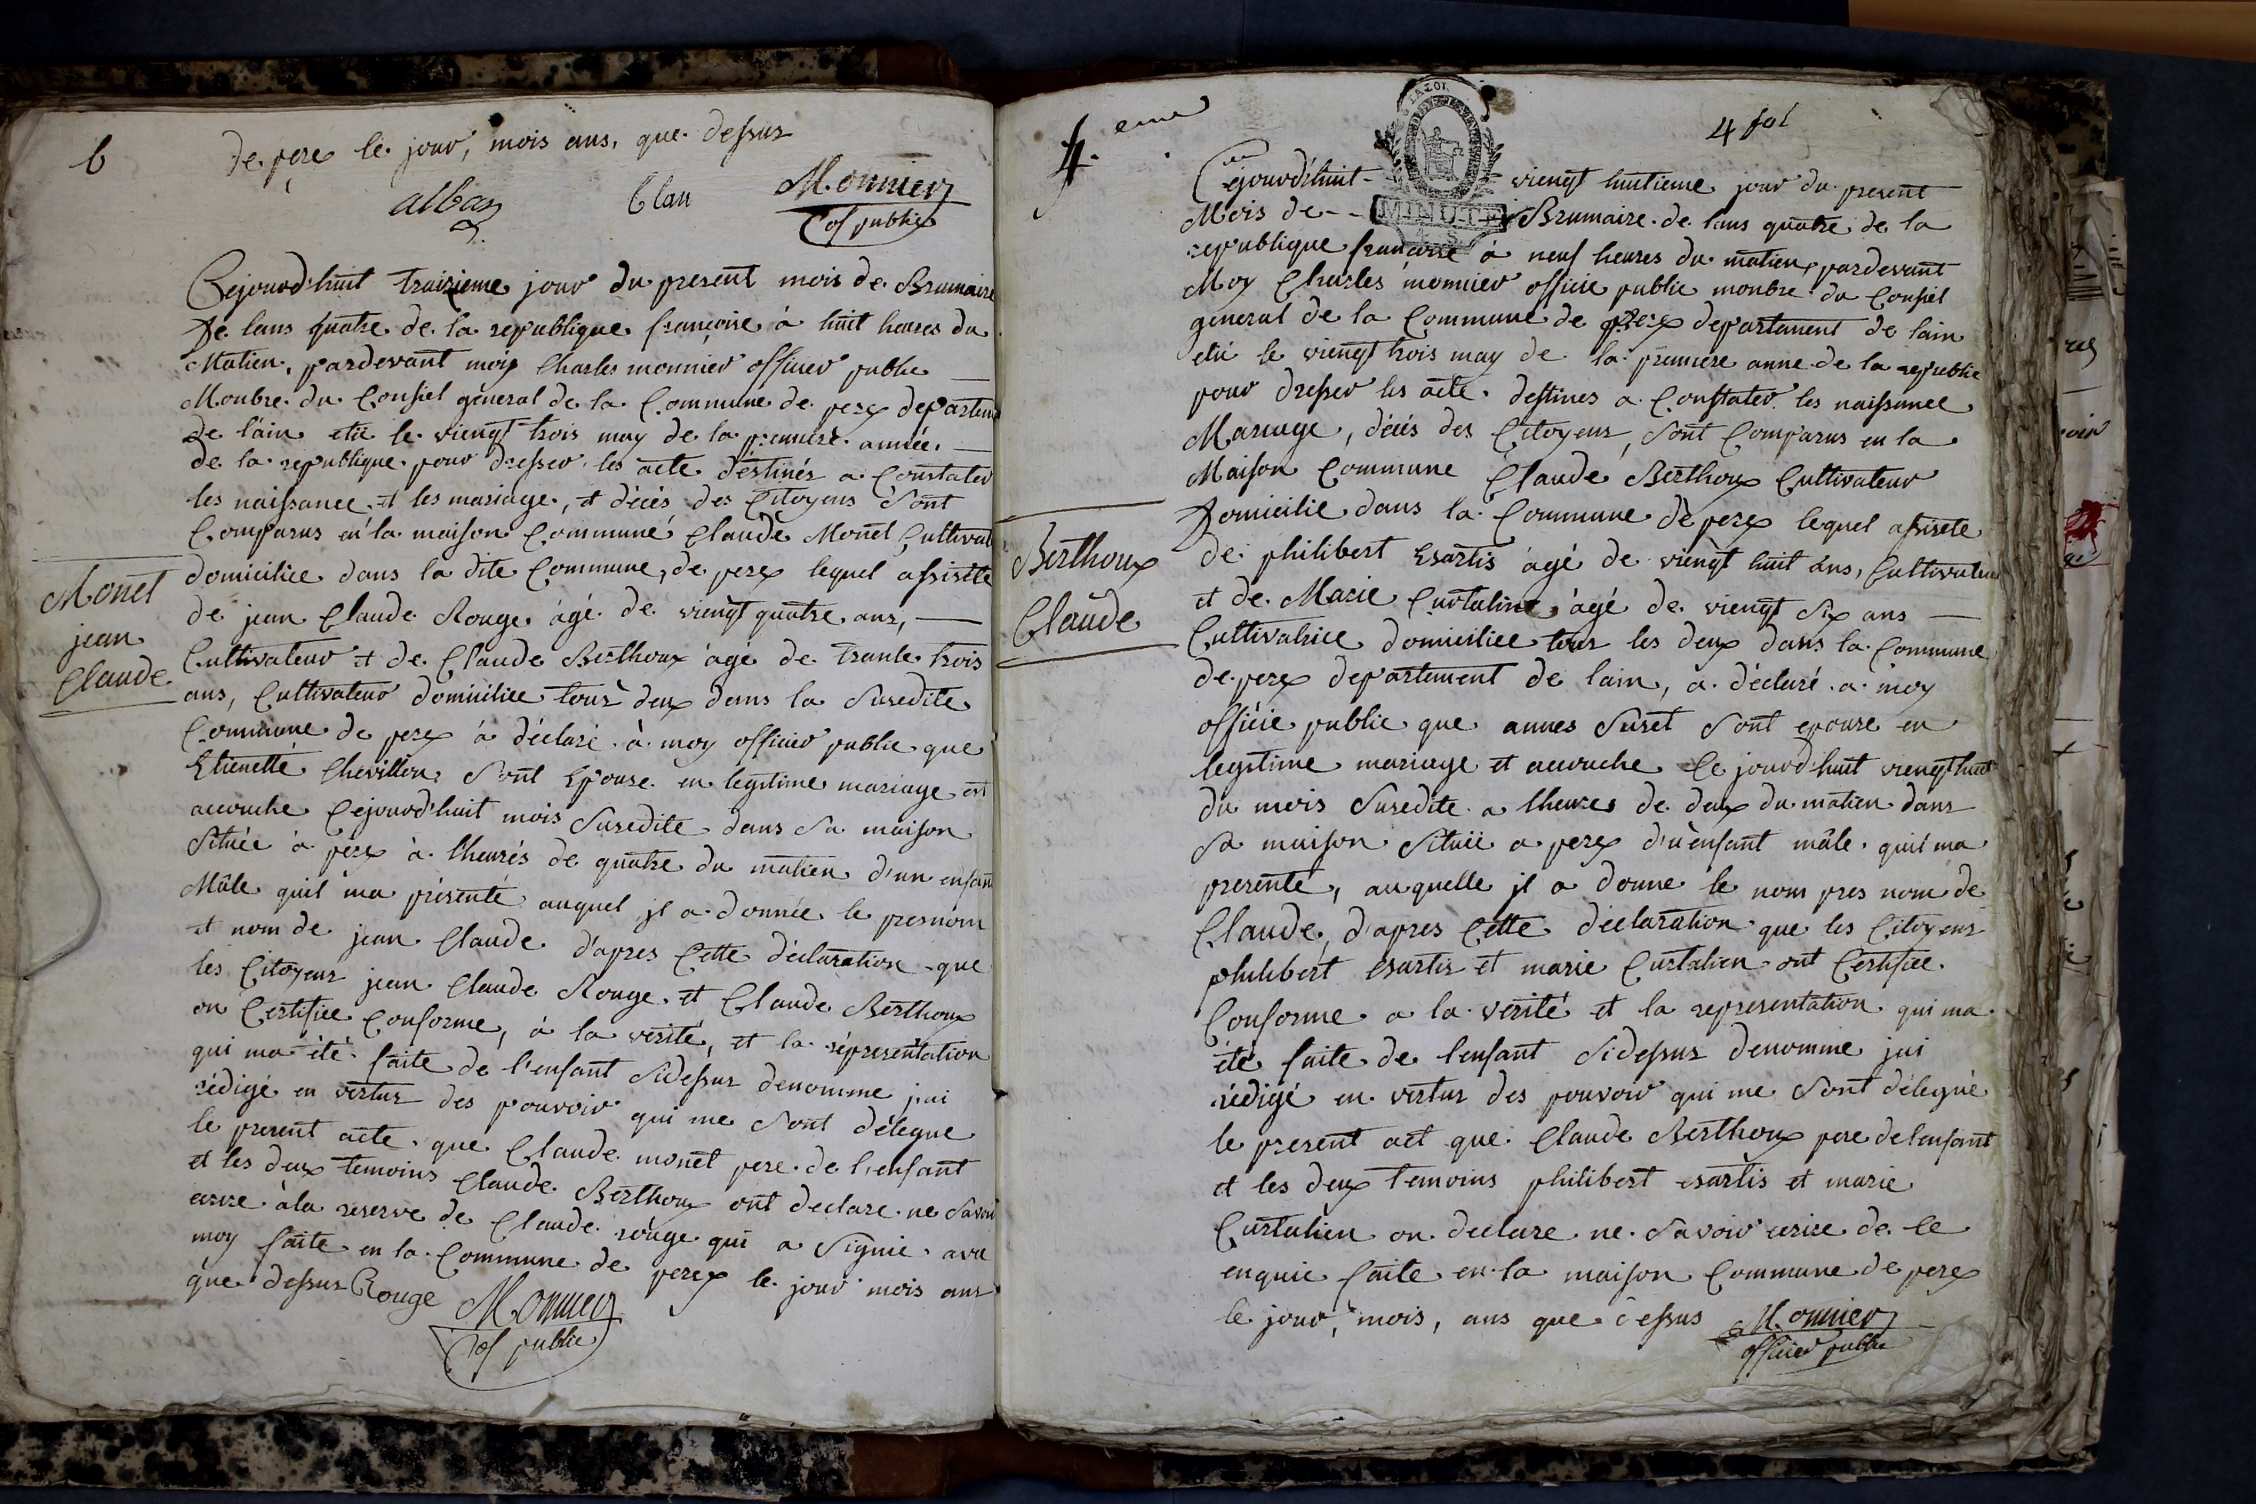 6
de perex le jour, mois ans, que dessus
alban Clau Monnier
of public
Cejourd'huit traizieme jour du present mois de Brumaire
De lans quatre de la republique françoise à huit heures du
Matien, pardevant moÿ Charles monnier officier public
Monbre du Consiel general de la Commune de perex departem
de l'ain elü le viengt trois may de la premiere année
de la republique pour dresser les acte déstinés a Constater
les naissance et les mariage, et décès des Citoyens Sont
Comparus en la maison Commune Claude Monet Cultivat
domiciliee dans la dite Commune, de perex lequel assistée
Monet
jean
Claude
de jean Claude Rouge âgé de viengt quatre ans,
Cultivateur et de Claude Berthoux âgé de trante trois
ans, Cultivateur domiciliee tour deux dans la Suredite
Commune de perex à déclaré à moy officier public que
Etienette Chevillon Sont Epouse en legitime mariage est
accouche Cejourd'huit mois Suredite dans Sa maison
Située à pérex à l'heurés de quatre du matien d'un enfant
Mâle quil ma présenté auquel jl a donnée le presnom
et nom de jean Claude d'apres Cette déclaration que
les Citoyens jean Claude Rouge et Claude Berthoux
on Certifiee Conforme, à la verité, et la réprésentation
qui ma été faite de l'enfant Sidessur denomme jai
rédigé en vertus des pouvoir qui me Sont délegue
le present acte que Claude monet pere de l'enfant
et les deux temoins Claude Berthoux ont declare ne Savoir
ecrire à la reserve de Claude rouge qui a Signié avec
moy faite en la Commune de perex le jour mois ans
que dessus Rouge Monnier
of public
4 eme
4 fol
MINUTE
Cejourd'huit viengt huitieme jour du present
Mois de Brumaire de lans quatre de la
republique françoise à neuf heures du matien pardevant
Moy Charles monnier officie public monbre du Consiel
general de la Commune de perex departement de lain
elü le viengt trois may de la premiere anne de la republic
pour dresser les acte destines a Constater les naissance
Mariage, décés des Citoyens, Sont Comparus en la
Maison Commune Claude Berthoux Cultivateur
Domicilie dans la Commune de perex lequel assistée
Berthoux
Claude
de philibert Esartis âgé de viengt huit ans, Cultivateur
et de Marie Curtaline âgé de viengt Six ans
Cultivatrice domiciliee tour les deux dans la Commune
de perex departement de lain, a déclaré a moy
officie public que annes Suret Sont epouse en
legitime mariage et accouche Ce jourd'huit viengt huit
du mois Suredite a lheures de deux du matien dans
Sa maison Situéé a perex d'uenfant mâle quil ma
presenté, auquelle jl a donne le nom pres nom de
Claude, d'apres Cette déclaration que les Citoyens
philibert esartis et marie Curtalien ont Certifiee
Conforme a la verité et la representation qui ma
été faite de lenfant Sidessus denomme jai
rédigé en vertus des pouvoir qui me Sont délegué
le present act que Claude Berthoux pere de lenfant
et les deux temoins philibert esartis et marie
Curtalien on declare ne Savoir ecrire de Ce
enquie faite en la maison Commune de perex
le jour, mois, ans que dessus Monnier
officier public